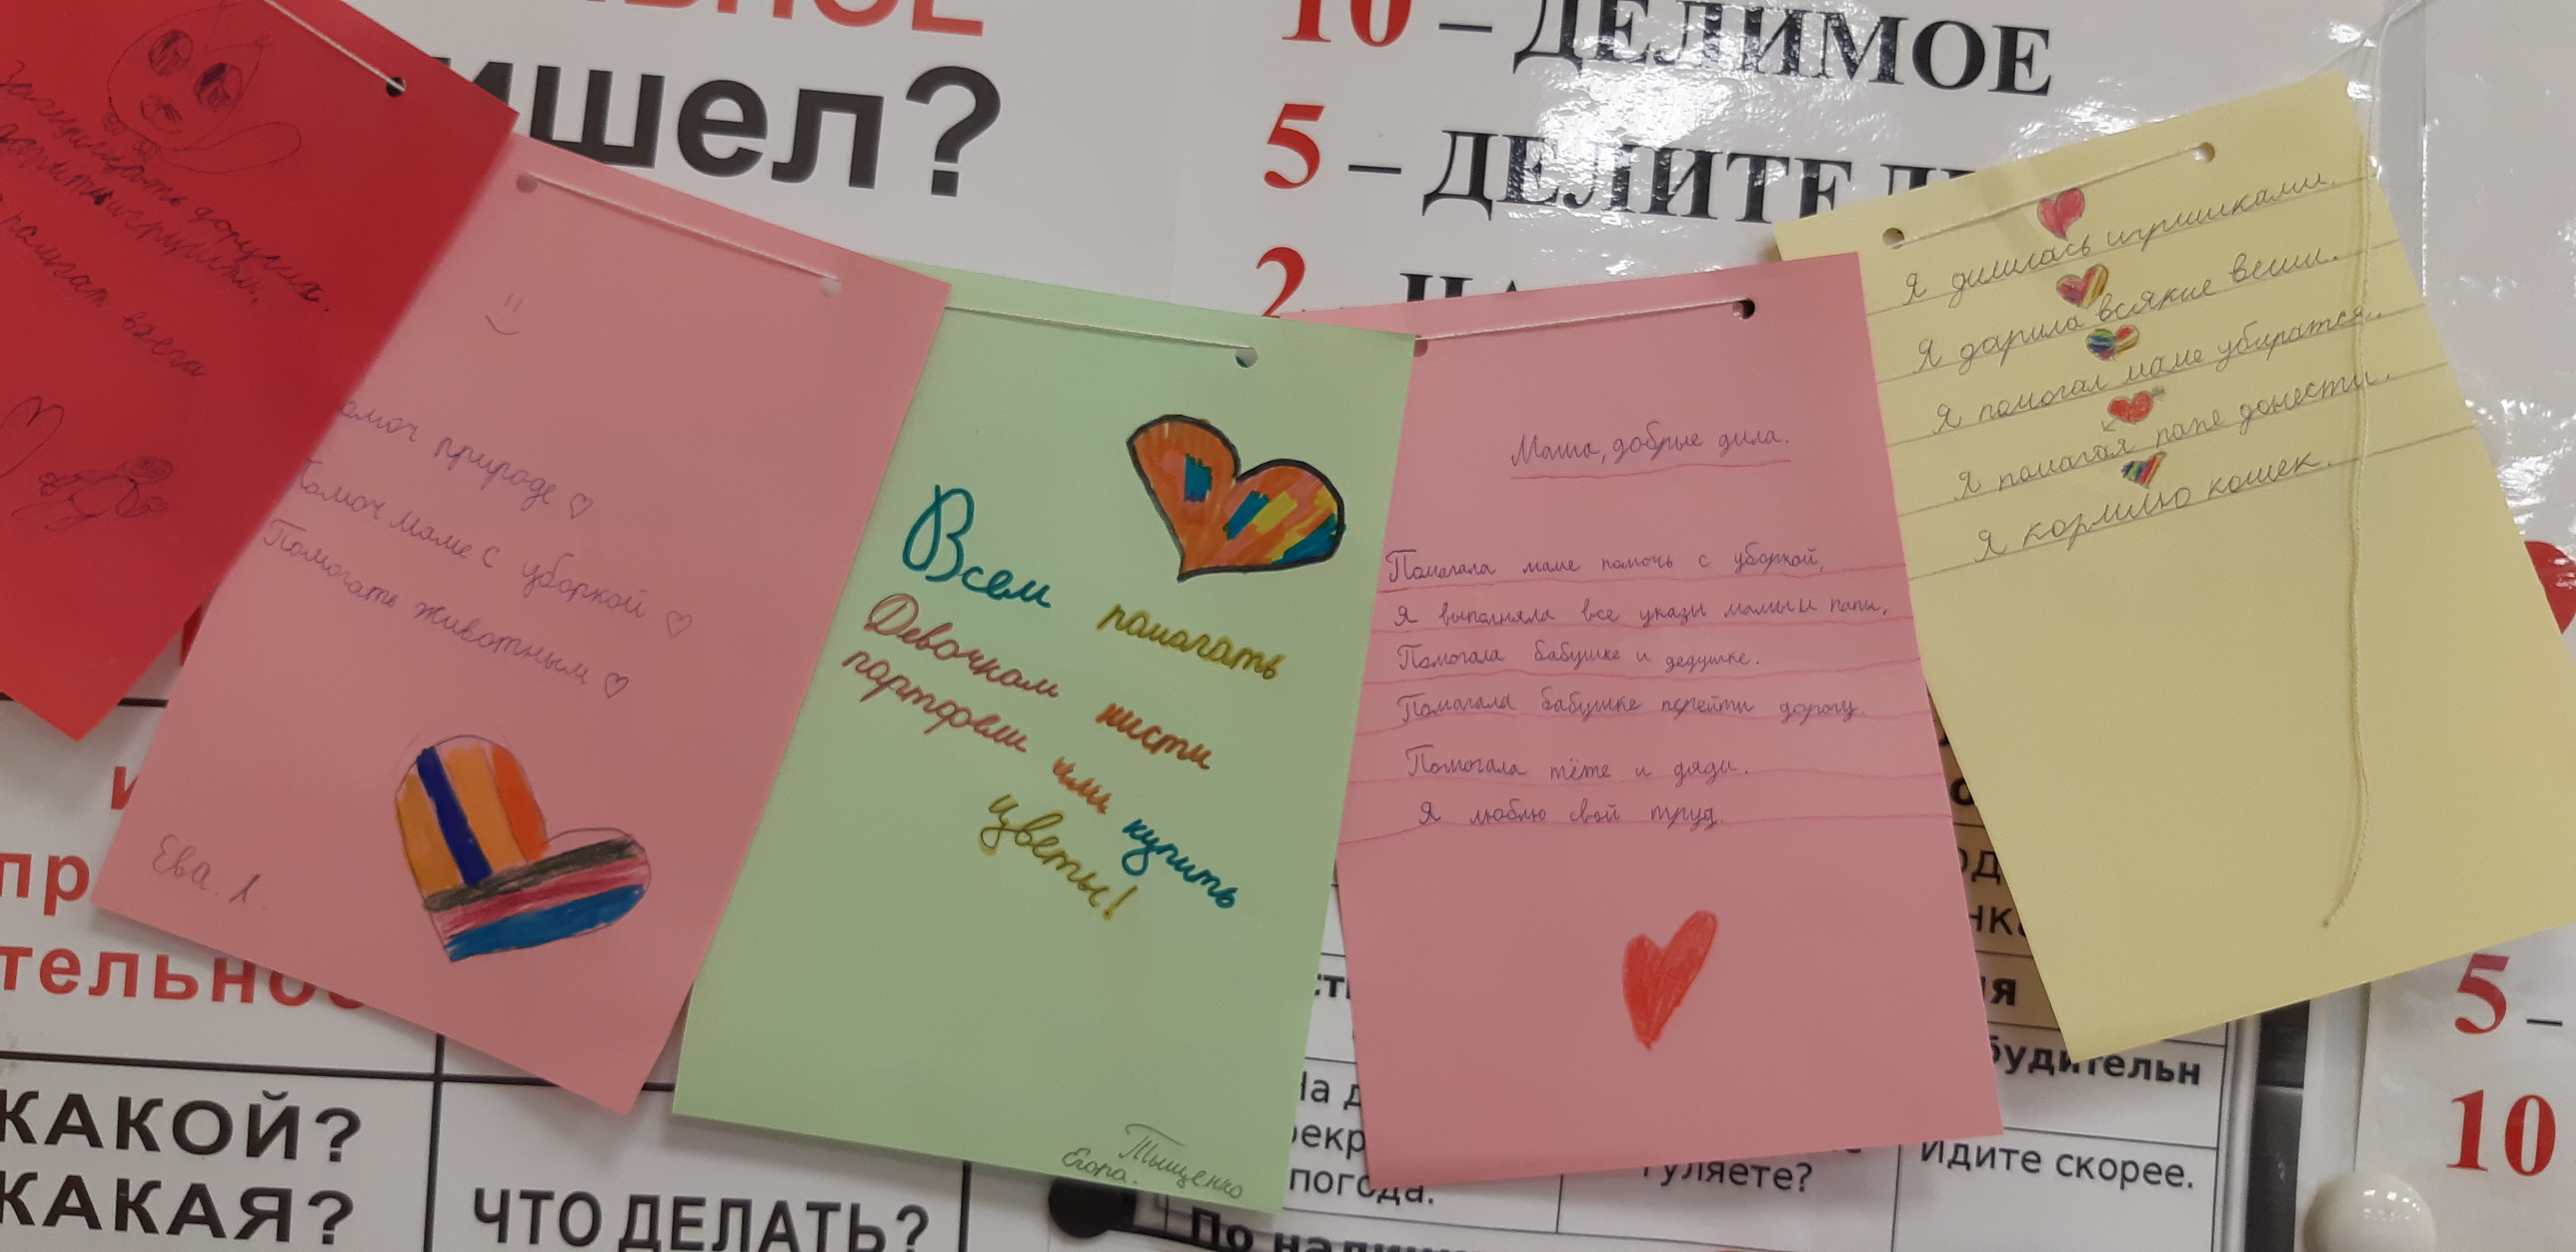 ишел?
10 – ДЕЛИМОЕ
5 – ДЕЛИТЕ
2
дарить игрушки,
природе ♡
Помоч маме с уборкой ♡
Помогать животным ♡
Ева. Л.
Всем памагать
Девочкам нисти
партфели или купить
цветы!
Тыщенко
Егора.
Маша, добрые дила.
Памагала маме помочь с уборкой,
Я выполняла все указы мамы и папы.
Помогала бабушке и дедушке.
Памагала бабушке перейти дорогу.
Помогала тёте и дяди.
Я люблю свой труд.
Я дилилась игрушками.
Я дарила всякие вещи.
Я помогал маме убиратся.
Я помагая папе донести.
Я кормлю кошек.
КАКОЙ?
КАКАЯ?
ЧТО ДЕЛАТЬ?
погода.
гуляете?
будительн
Идите скорее.
5 –
10